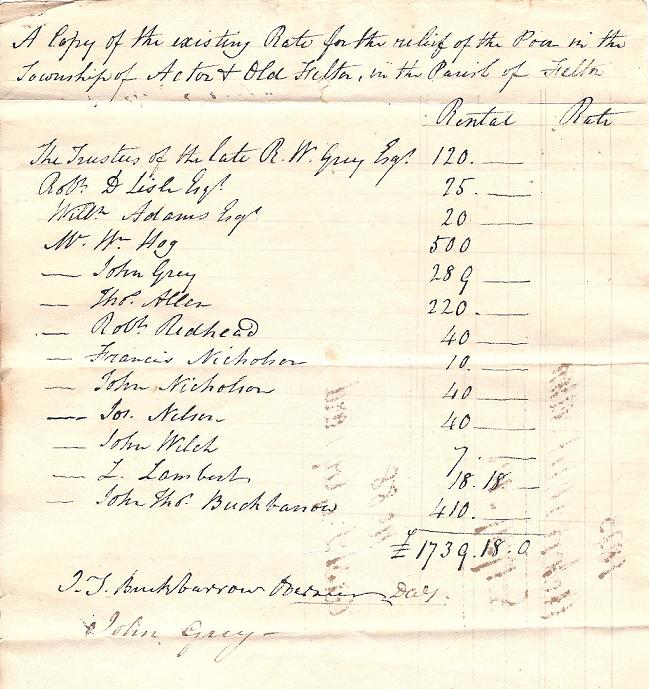 A Copy of the existing Rate for the relief of the Poor in the
Township of Acton & Old Felton, in the Parish of Felton
Rental Rate
The Trustees of the late R. W. Grey Esqr. 120. —
Robt. D Lisle Esqr 75. —
Willm Adams Esqr 20 —
Mr. Wm Hog 500
— John Grey 289 —
— Thos. Allen 220. —
— Robt. Redhead 40 —
— Francis Nicholson 10. —
— John Nicholson 40 —
— Jos. Nelson 40 —
— John Wilch 7. —
— L. Lambert 18. 18 —
— John Thos. Buckbarrow 410. —
£1739.18.0
J. T. Buckbarrow Overseer
John Grey —